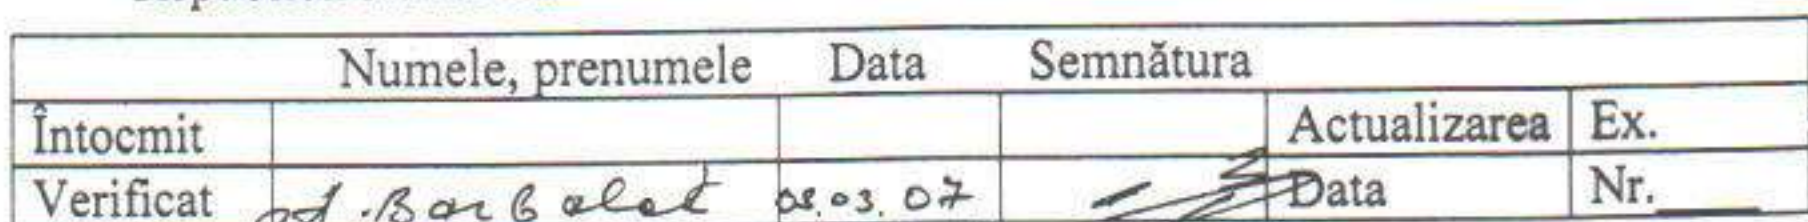 Numele, prenumele Data Semnătura
Întocmit Actualizarea Ex.
Verificat A. Barbalat 08.03.07 Data Nr.